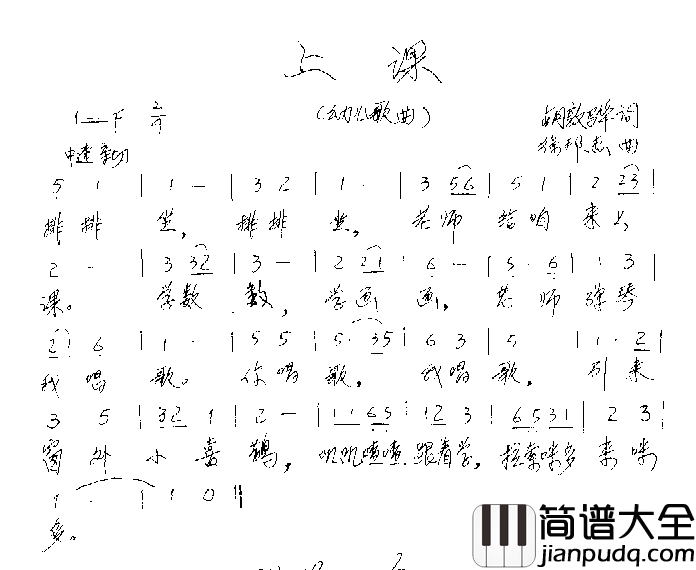 上 课
1=F 2/4
(幼儿歌曲)
胡敦骅词
中速 亲切
徐邦杰曲
5 1 | 1 - | 3 2 | 1 · | 3 56 | 5 1 | 2 23 |
排排 坐, 排排 坐, 老师 给咱 来上
2 - | 3 32 | 3 - | 2 21 | 6 - | 5 · 6 | 1 3 |
课。 学数 数, 学画 画, 老 师 弹琴
2 6 | 1 · | 5 5 | 5 · 35 | 6 3 | 5 | 1 · 2 |
我唱 歌。 你唱 歌, 我唱 歌, 引来
3 5 | 32 1 | 2 - | 11 65 | 12 3 | 6531 | 2 3 |
窗外 小喜 鹊, 叽叽喳喳 跟着学, 拉索咪多 来咪
1 · | 1 0 ‖
多。
简谱大全
jianpudq.com